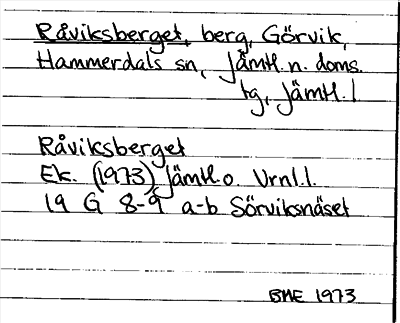 Råviksberget, berg, Görvik,
Hammerdals sn, Jämtl. n. doms.
tg, Jämtl. l
Råviksberget
Ek. (1973) Jämtl. o. Vrnl. l.
19 G 8-9 a-b Sörviksnäset
BME 1973